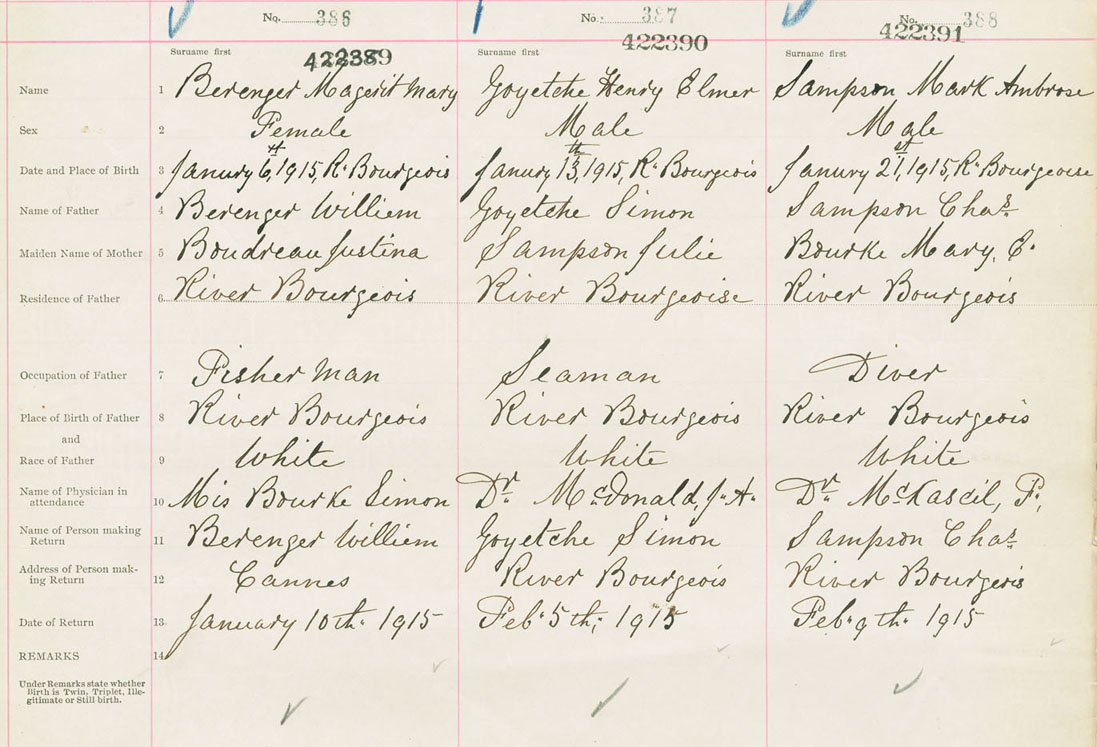 No. 386 No. 387 No. 388
Surname first Surname first Surname first
422389 422390 422391
Name 1 Berenger Magerit Mary Goyetche Henry Elmer Sampson Mark Ambrose
Sex 2 Female Male Male
Date and Place of Birth 3 Janury 6, 1915, R. Bourgeois Janury 13th, 1915, R. Bourgeois Janury 21st, 1915, R. Bourgeoise
Name of Father 4 Berenger Williem Goyetche Simon Sampson Chas.
Maiden Name of Mother 5 Boudreau Justina Sampson Julie Bourke Mary, C.
Residence of Father 6 River Bourgeois River Bourgeoise River Bourgeois
Occupation of Father 7 Fisher Man Seaman Diver
Place of Birth of Father 8 River Bourgeois River Bourgeois River Bourgeois
and
Race of Father 9 White White White
Name of Physician in
attendance 10 Mis Bourke Simon Dr. McDonald, J. A. Dr. McKascil, F,
Name of Person making
Return 11 Berenger Williem Goyetche Simon Sampson Chas.
Address of Person mak-
ing Return 12 Cannes River Bourgeois River Bourgeois
Date of Return 13 January 10th. 1915 Feb. 5th; 1915 Feb. 9th. 1915
REMARKS 14
Under Remarks state whether
Birth is Twin, Triplet, Ille-
gitimate or Still birth.